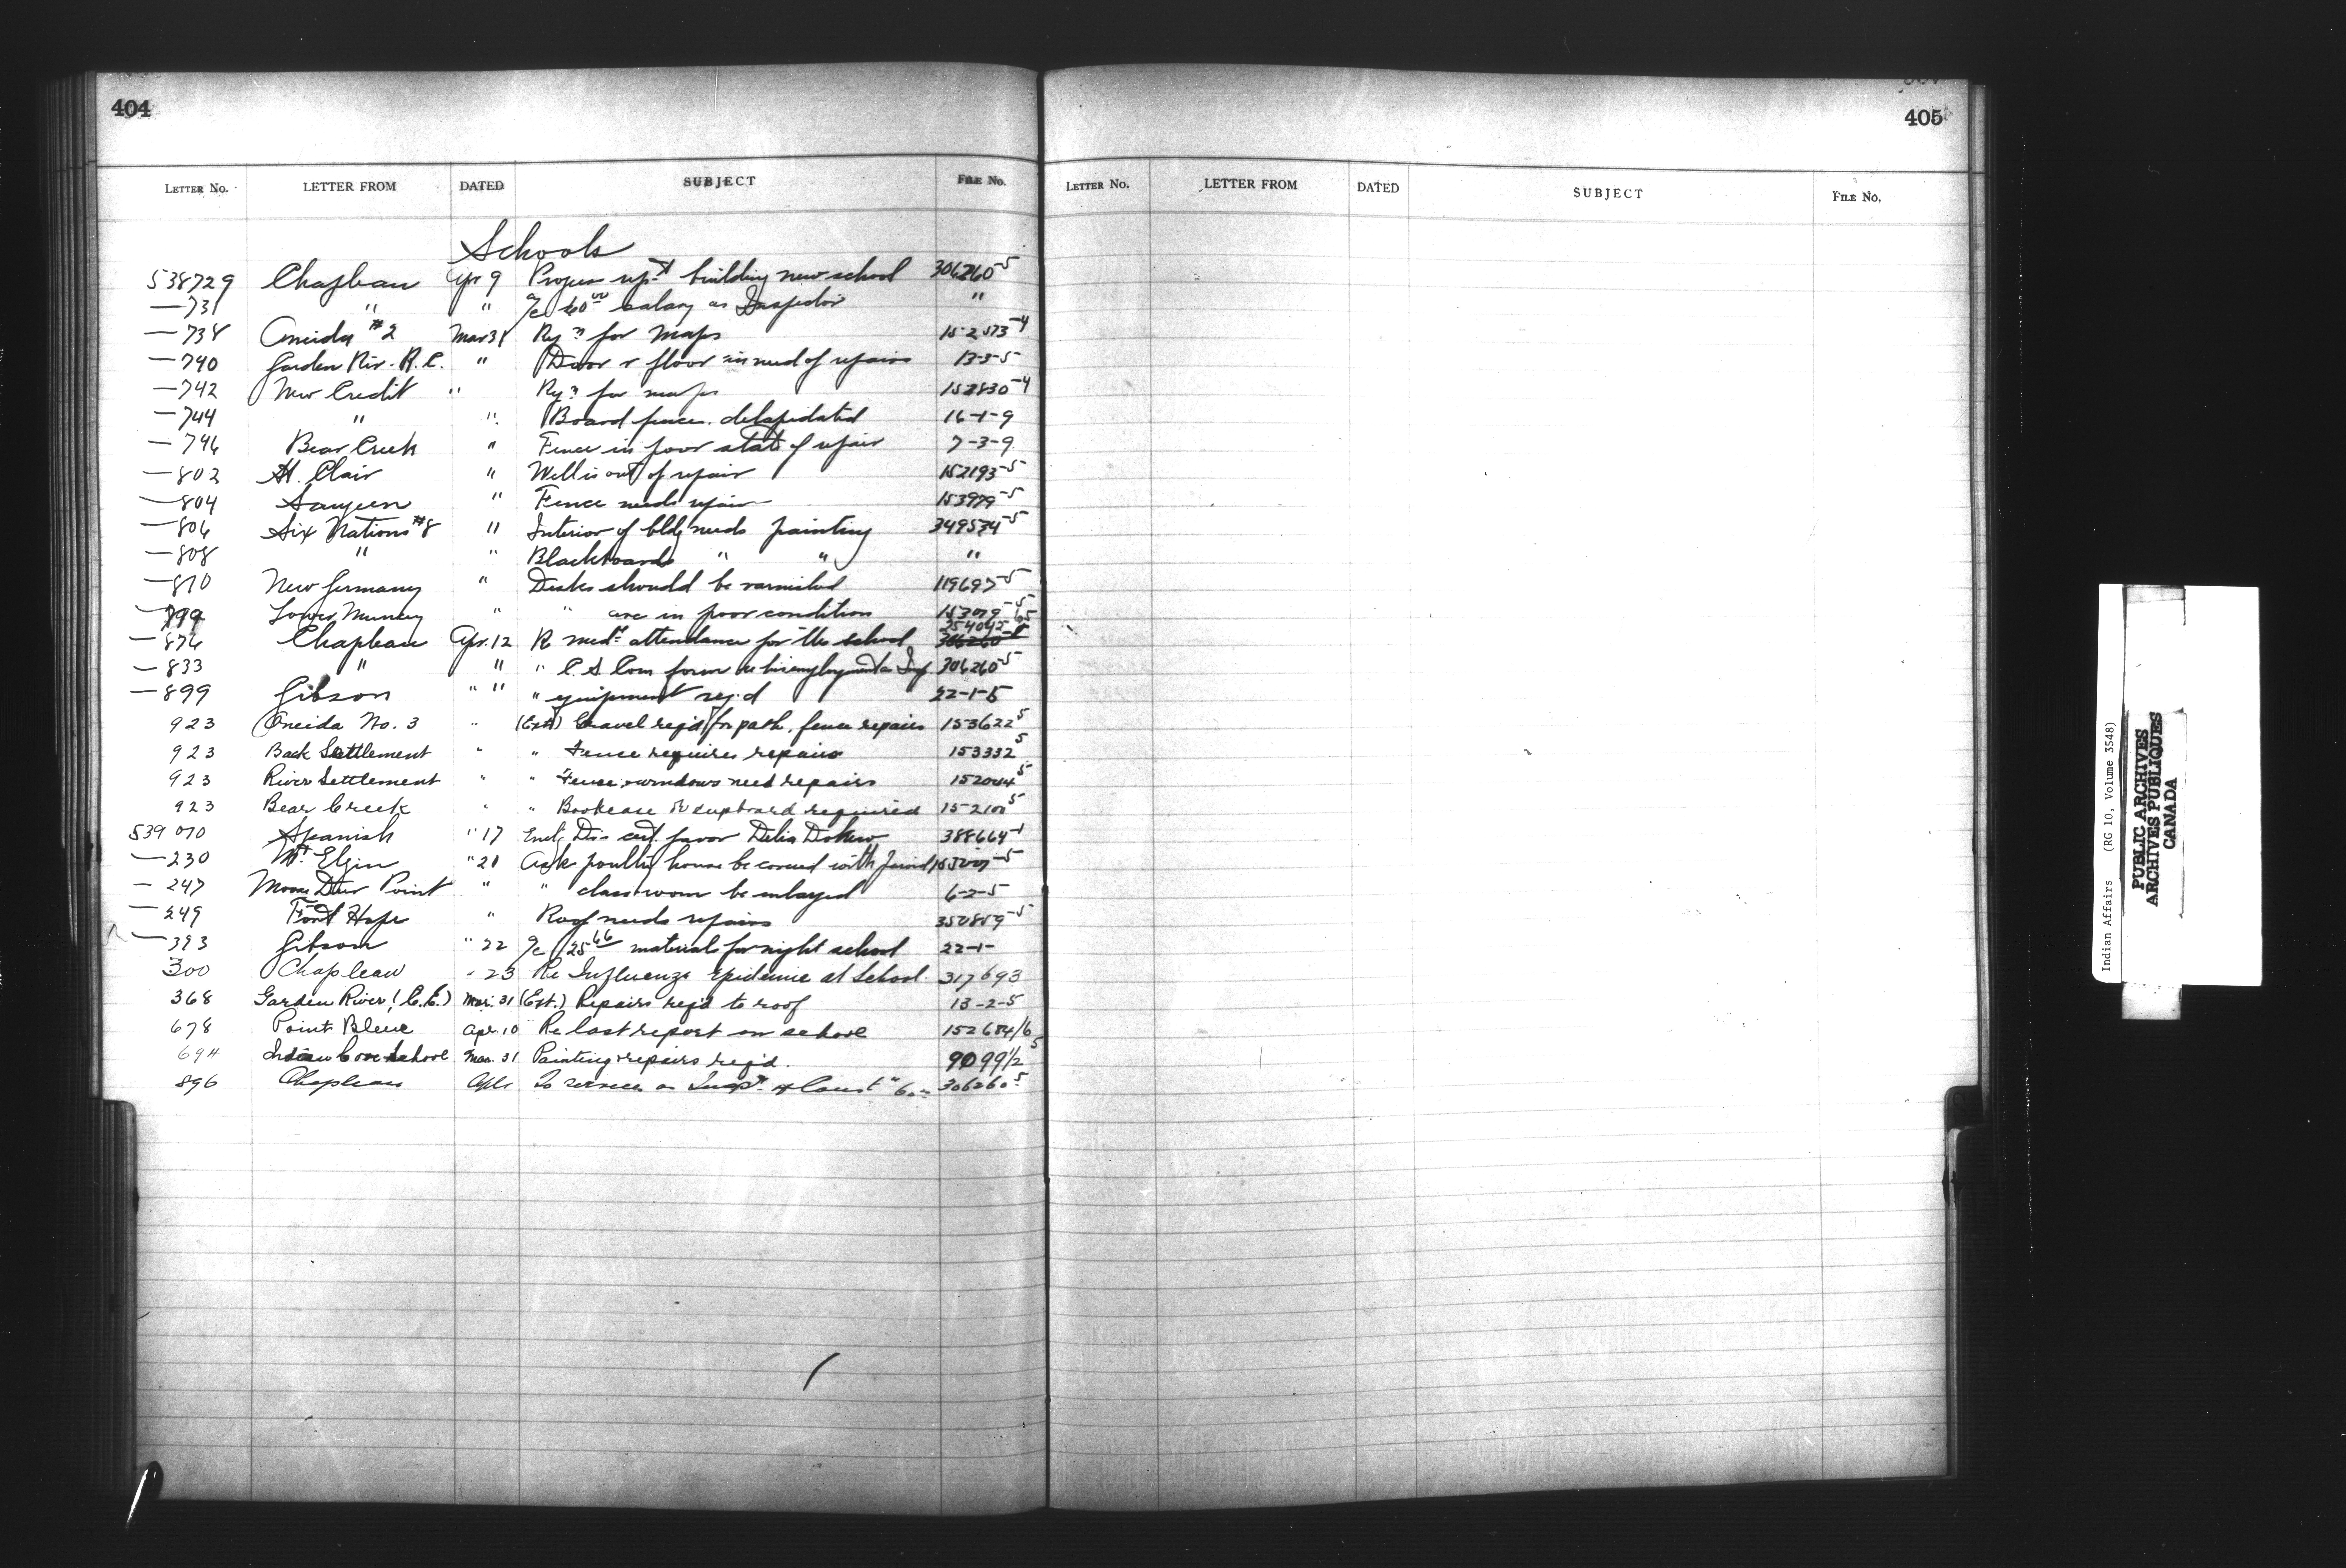 404
LETTER NO. LETTER FROM DATED SUBJECT FILE No.
Schools
538729 Chapleau Apr 9 Progress rept building new school 306260-5
—731 " " a/c 60.00 salary as Inspector "
—738 Oneida #2 Mar 31 Rq.n for maps 152573-4
—740 Garden Riv. R.C. " Door & floor in need of repairs 13-3-5
—742 New Credit " Rq.n for maps 152830-4
—744 " " Board fence delapidated 16-1-9
—746 Bear Creek " Fence in poor state of repair 7-3-9
—802 St. Clair " Well is out of repair 152193-5
—804 Saugeen " Fence needs repair 153979-5
—806 Six Nations #8 " Interior of bldg needs painting 349534-5
—808 " " Blackboards " " "
—810 New Germany " Desks should be varnished 119697-5
—799 Lower Muncey " " are in poor condition
—876 Chapleau Apr. 12 R medl attendance for the school 254045
—833 " " " C.S. Com form re employment as Insp 306260-5
—899 Gibson " " " equipment reqd 22-1-5
923 Oneida No. 3 " (Ext) Gravel req'd for path, fence repairs 153622 5
923 Back Settlement " " Fence requires repairs 153332 5
923 River Settlement " " Fence & windows need repairs 152044 5
923 Bear Creek " " Bookcase or cupboard required 5
539 010 Spanish " 17 Encl. Dis cert favor Delia 388664-1
—230 Mt. Elgin " 21 Ask poultry house be covered with
—247 Moose Deer Point " " class room be enlarged 6-2-5
—249 Fort Hope " Roof needs repairs 350859-5
—393 Gibson " 22 a/c 25.66 material for night school 22-1-
300 Chapleau " 23 Re Influenza Epidemic at School. 317693
368 Garden River (C.E.) Mar. 31 (Ext.) Repairs req'd to roof 13-2-5
678 Point Bleue Apr. 10 Re last report on school 152684/6
694 Indian Cove School Mar. 31 Painting & repairs req'd. 9099 1/2 5
896 Chapleau Apl To services as Insp.r of Const " 60 306260 5
405
LETTER NO. LETTER FROM DATED SUBJECT FILE NO.
Indian Affairs (RG 10, Volume 3548)
PUBLIC ARCHIVES
ARCHIVES PUBLIQUES
CANADA